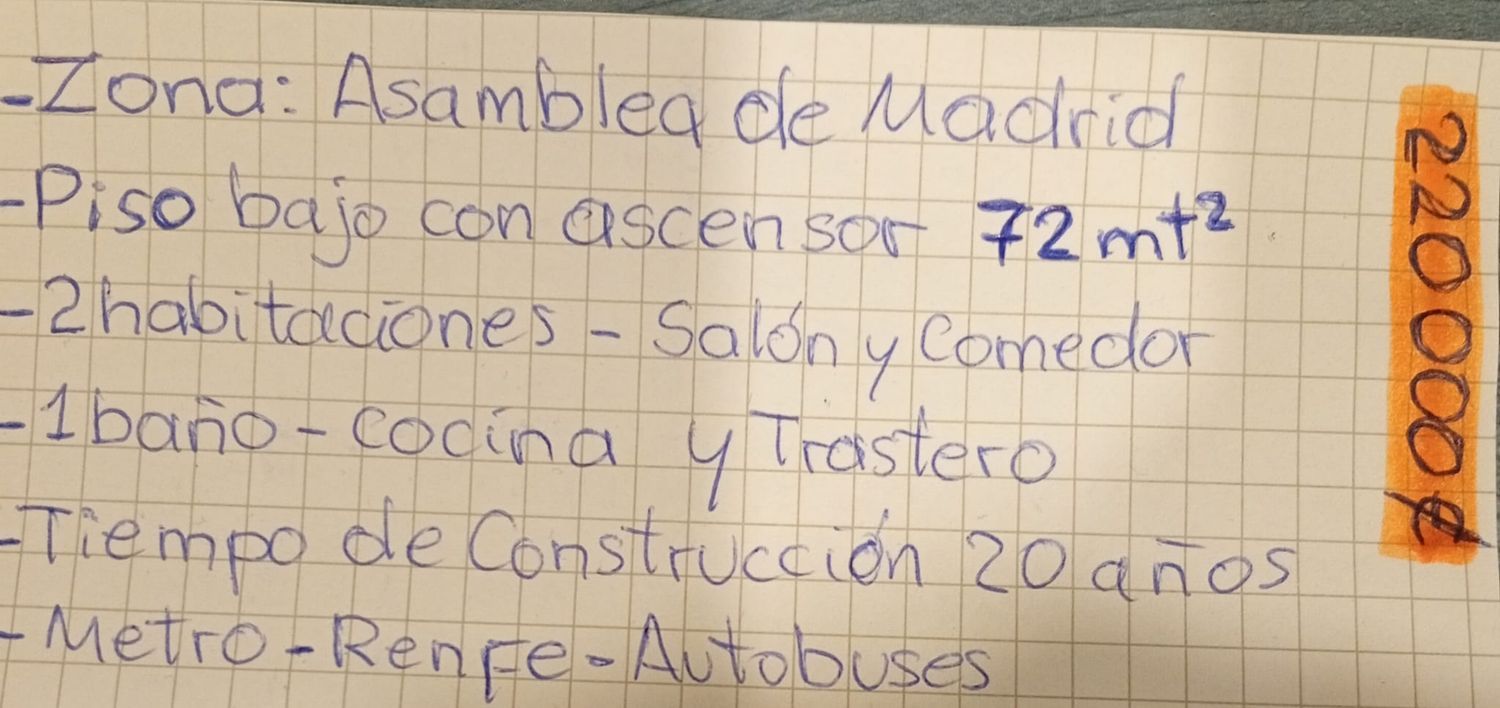 - Zona: Asamblea de Madrid
- Piso bajo con ascensor 72 mt²
- 2 habitaciones - Salón y Comedor
- 1 baño - cocina y Trastero
- Tiempo de Construcción 20 años
- Metro - Renfe - Autobuses
220000€